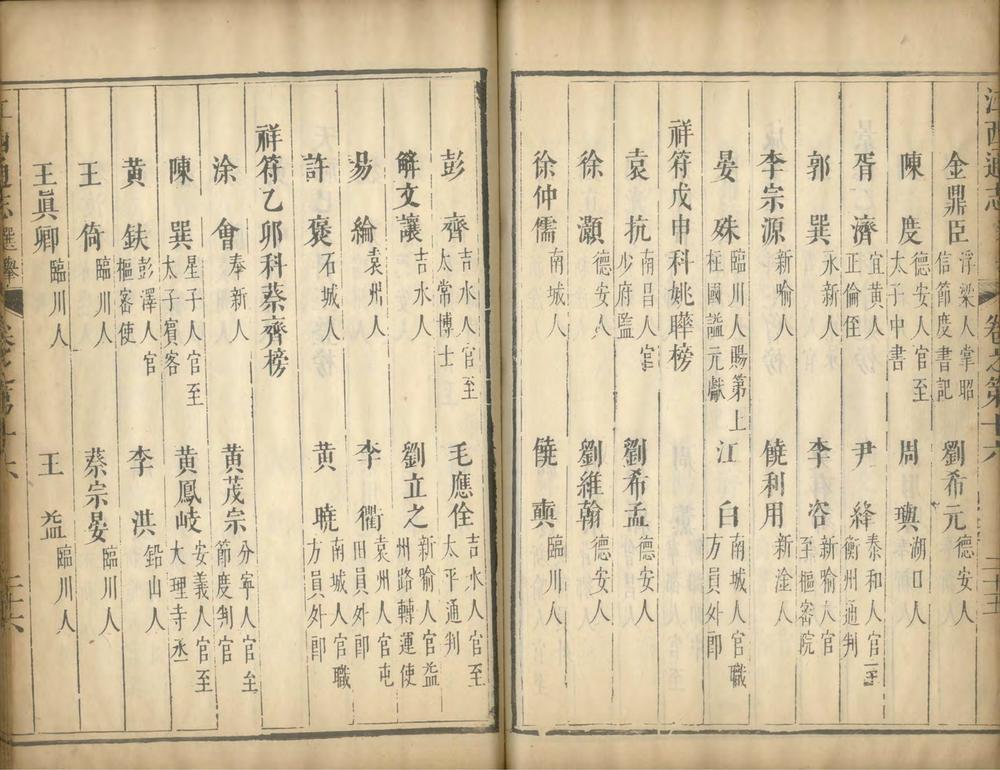 江西通志 卷之第十六 二十五
金鼎臣 浮梁人掌昭信節度書記 劉希元 德安人
陳度 德安人官至太子中書 周璵 湖口人
胥濟 宜黃人正倫侄 尹絳 泰和人官至衡州通判
郭巽 永新人 李容 新喻人官至樞密院
李宗源 新喻人 饒利用 新淦人
晏殊 臨川人賜第上柱國謚元獻 江白 南城人官職方員外郎
祥符戊申科姚曄榜
袁抗 南昌人官少府監 劉希孟 德安人
徐灝 德安人 劉維翰 德安人
徐仲儒 南城人 饒奭 臨川人
彭齊 吉水人官至太常博士 毛應佺 吉水人官至太平通判
解文讓 吉水人 劉立之 新喻人官益州路轉運使
易綸 袁州人 李衢 袁州人官屯田員外郎
許褒 石城人 黃曉 南城人官職方員外郎
祥符乙卯科蔡齊榜
涂會 奉新人 黃茂宗 分寧人官至節度判官
陳巽 星子人官至太子賓客 黃鳳岐 安義人官至大理寺丞
黃鈇 彭澤人官樞密使 李洪 鉛山人
王倚 臨川人 蔡宗晏 臨川人
王眞卿 臨川人 王益 臨川人
江西通志 選舉 卷之第十六 二十六